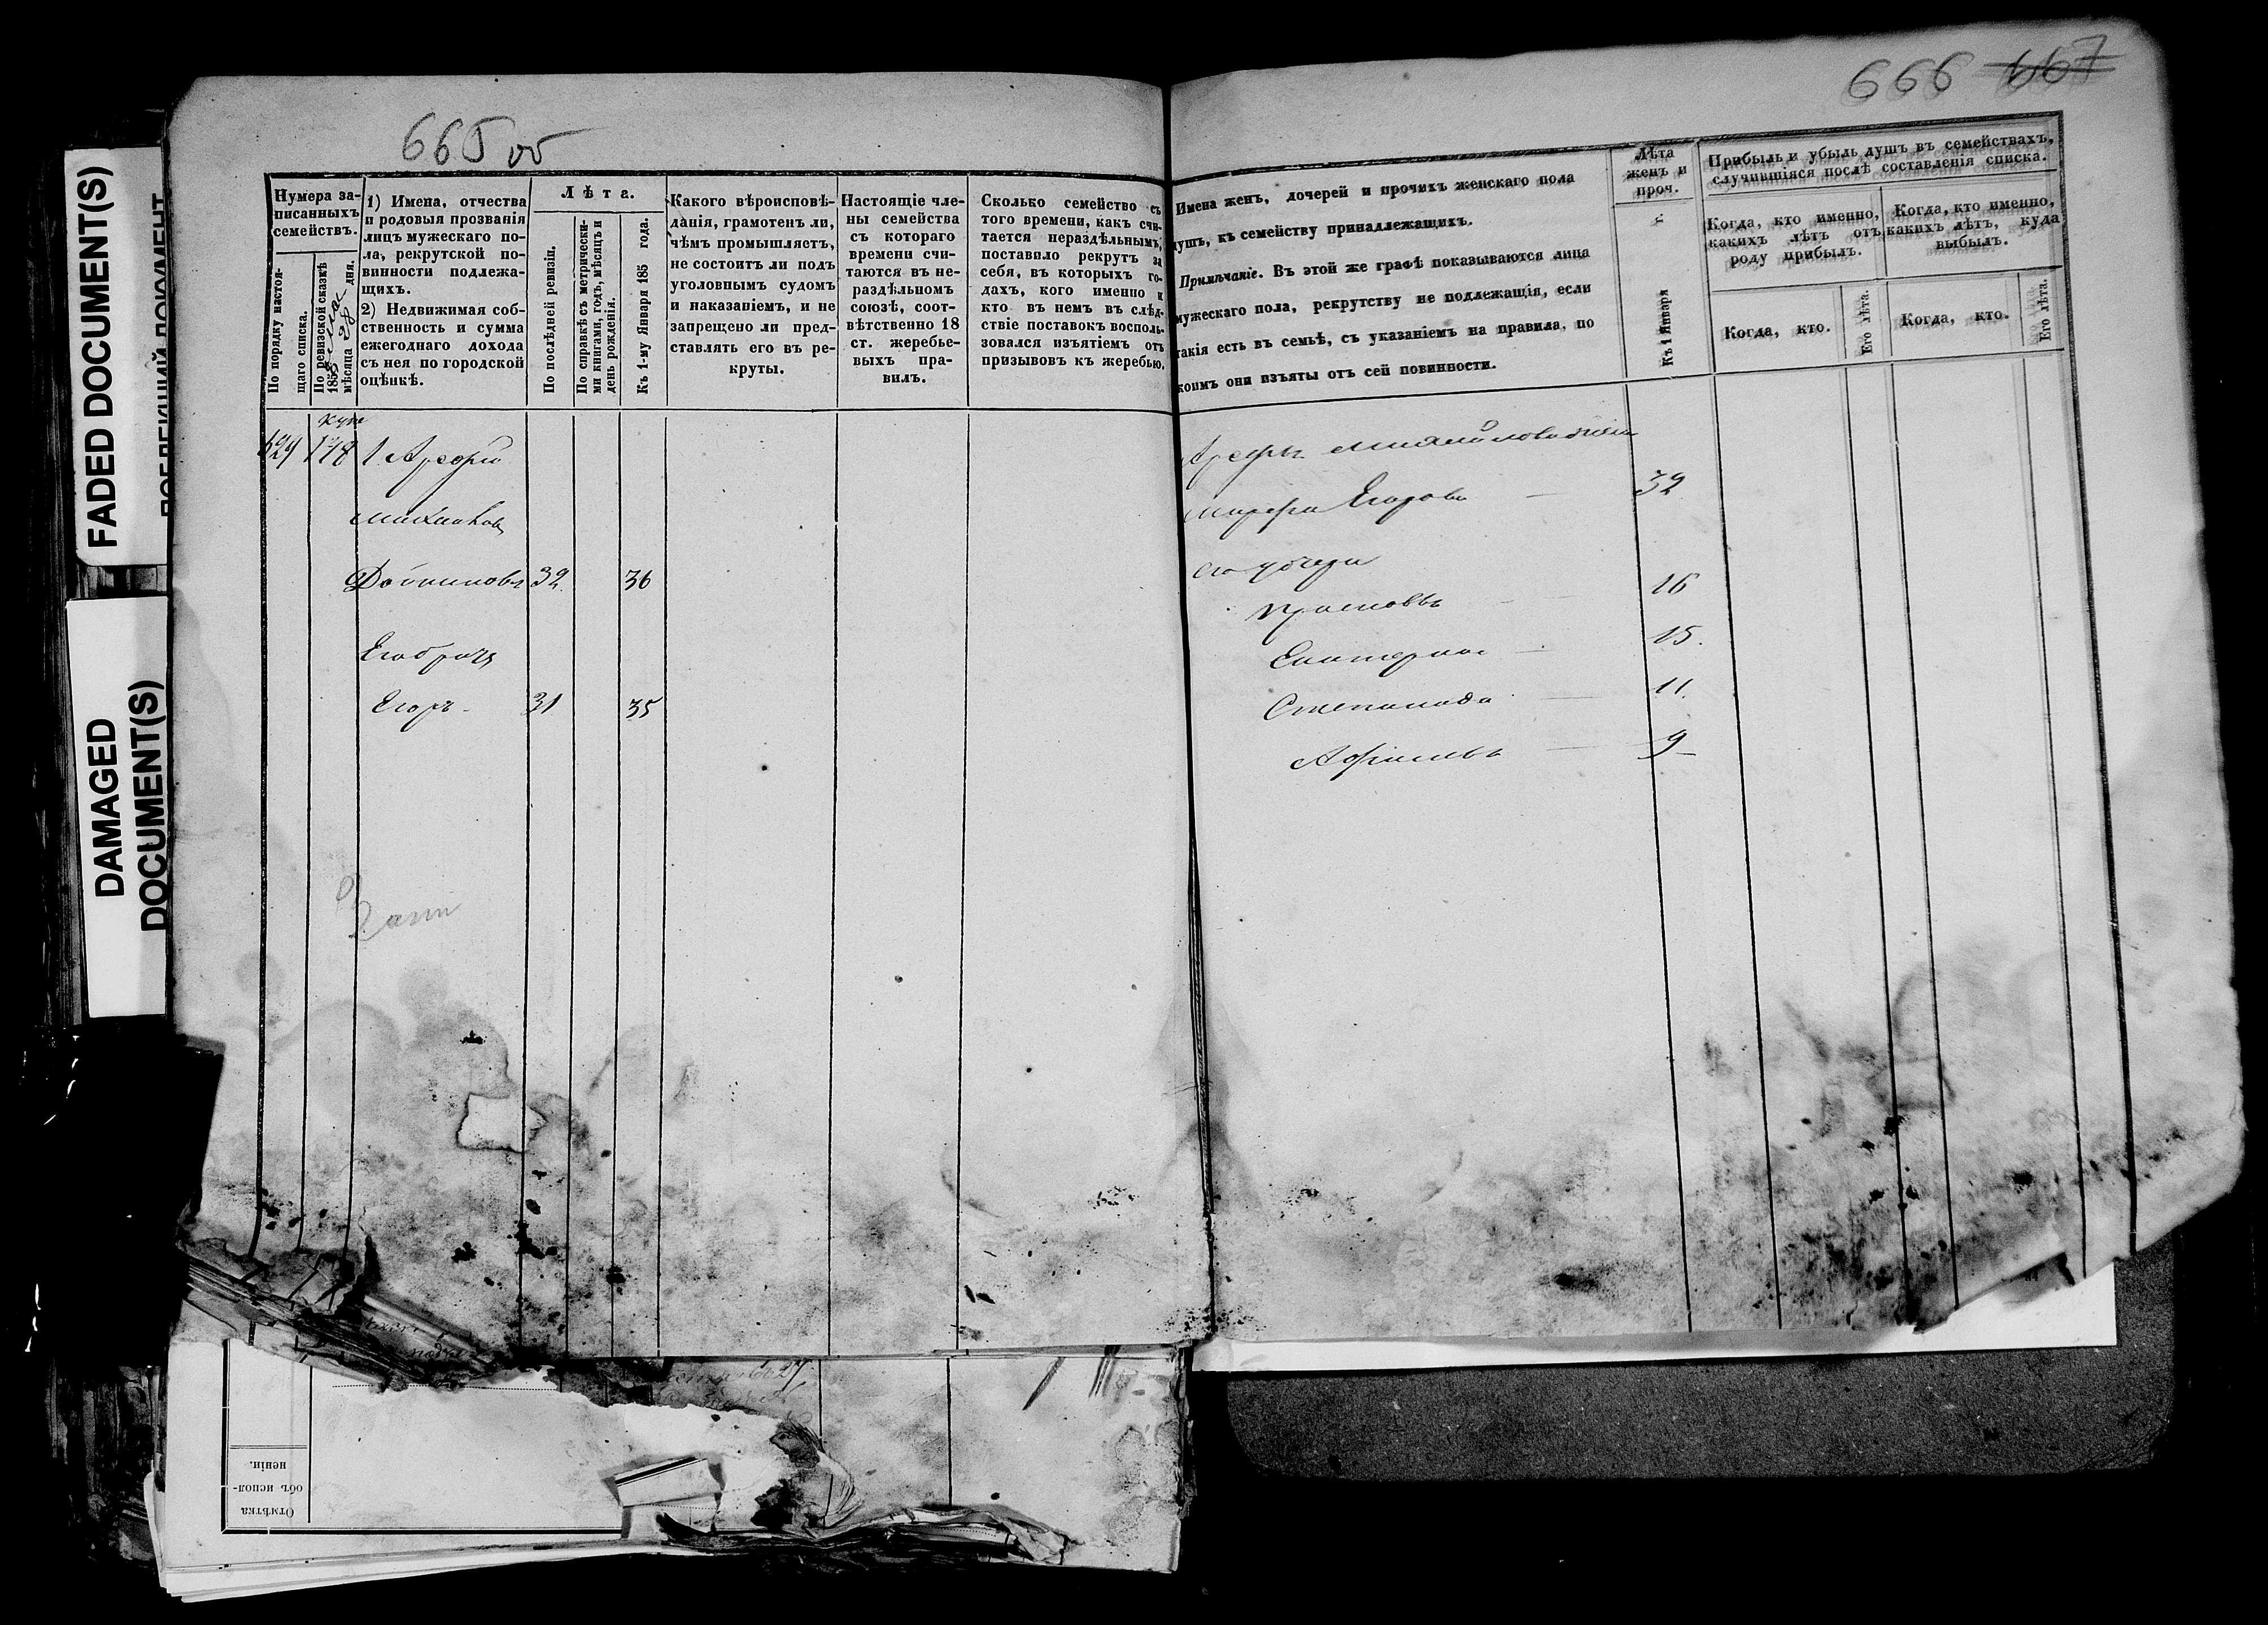 FADED DOCUMENT(S)
DAMAGED
DOCUMENT(S)
665 об
666 667
Нумера за-
писанныхъ
семействъ.
По порядку настоя-
щаго списка.
По ревизской сказкѣ
1858
мѣсяца 28 дня.
1) Имена, отчества
и родовыя прозванія
лицъ мужескаго по-
ла, рекрутской по-
винности подлежа-
щихъ.
2) Недвижимая соб-
ственность и сумма
ежегоднаго дохода
съ нея по городской
оцѣнкѣ.
Лѣта.
По послѣдней ревизіи.
По справкѣ съ метрически-
ми книгами, годъ, мѣсяцъ и
день рожденія.
Къ 1-му Января 185 года.
Какого вѣроисповѣ-
данія, грамотенъ ли,
чѣмъ промышляетъ,
не состоитъ ли подъ
уголовнымъ судомъ
и наказаніемъ, и не
запрещено ли пред-
ставлять его въ ре-
круты.
Настоящіе чле-
ны семейства
съ котораго
времени счи-
таются въ не-
раздѣльномъ
союзѣ, соот-
вѣтственно 18
ст. жеребье-
выхъ пра-
вилъ.
Сколько семейство съ
того времени, какъ счи-
тается нераздѣльнымъ,
поставило рекрутъ за
себя, въ которыхъ го-
дахъ, кого именно и
кто въ немъ въ слѣд-
ствіе поставокъ восполь-
зовался изъятіемъ отъ
призывовъ къ жеребью.
Имена женъ, дочерей и прочихъ женскаго пола
душъ, къ семейству принадлежащихъ.
Примѣчаніе. Въ этой же графѣ показываются лица
мужескаго пола, рекрутству не подлежащія, если
такія есть въ семьѣ, съ указаніемъ на правила, по
коимъ они взъяты отъ сей повинности.
Лѣта
женъ и
проч.
Къ 1 Января г.
Прибыль и убыль душъ въ семействахъ,
случившіяся послѣ составленія списка.
Когда, кто именно,
какихъ лѣтъ отъ
роду прибылъ.
Когда, кто именно,
какихъ лѣтъ, куда
выбылъ.
Когда, кто.
Его лѣта.
Когда, кто.
Его лѣта.
629 178 1 Арефій
Михайловъ
32 36
Его братъ
Егоръ 31 35
Арефы Михайлова жена
Марфа Егорова 32
Его дочери
Прасковья 16
Екатерина 15.
Степанида 11.
Афимья 9
Отмѣтка
объ испол-
неніи.